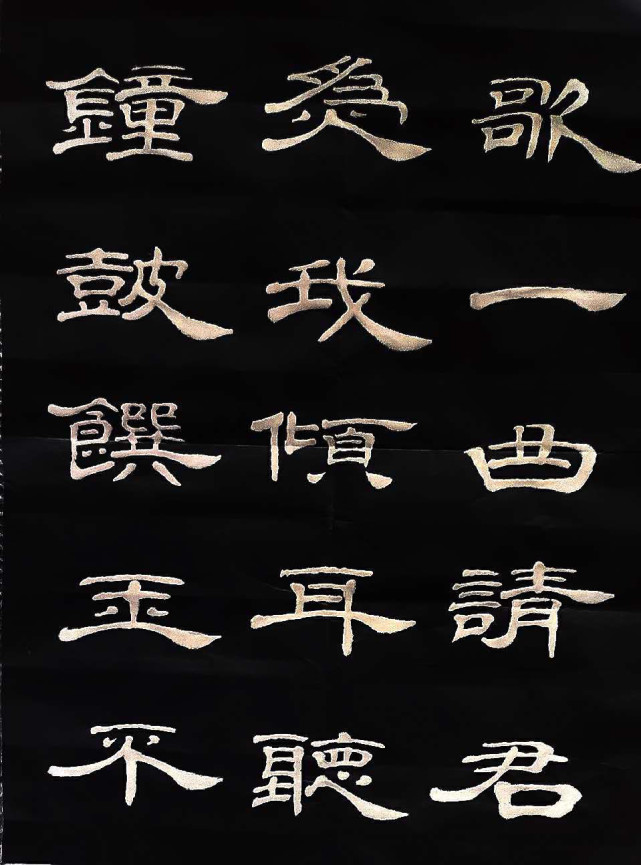 歌一曲請君
為我傾耳聽
鐘皷饌玉不